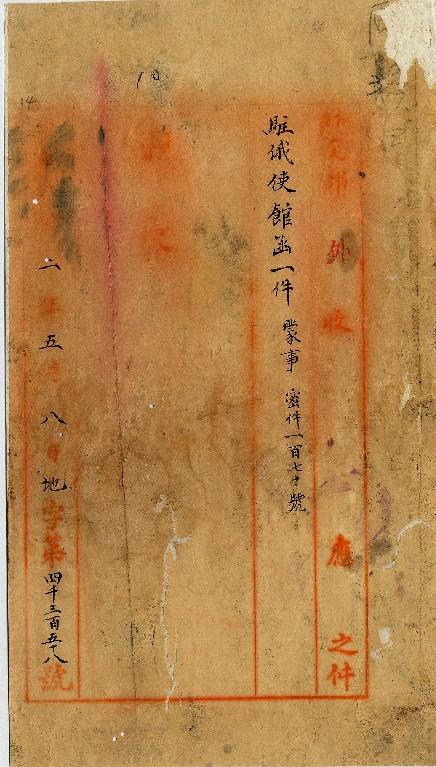 外交部 外收 應 之件
駐俄使館函一件 蒙事 密件一百七十號
二年五月八日地字第四千三百五十八號
14